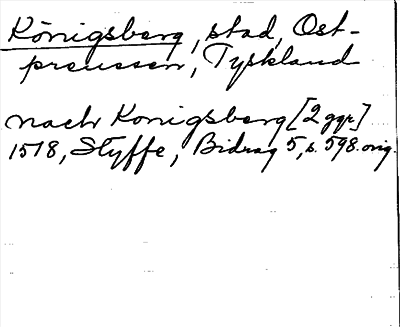 Königsberg, stad, Ost-
preussen, Tyskland
nach Konigsberg [2 ggr]
1518, Styffe, Bidrag 5, s. 598. orig.